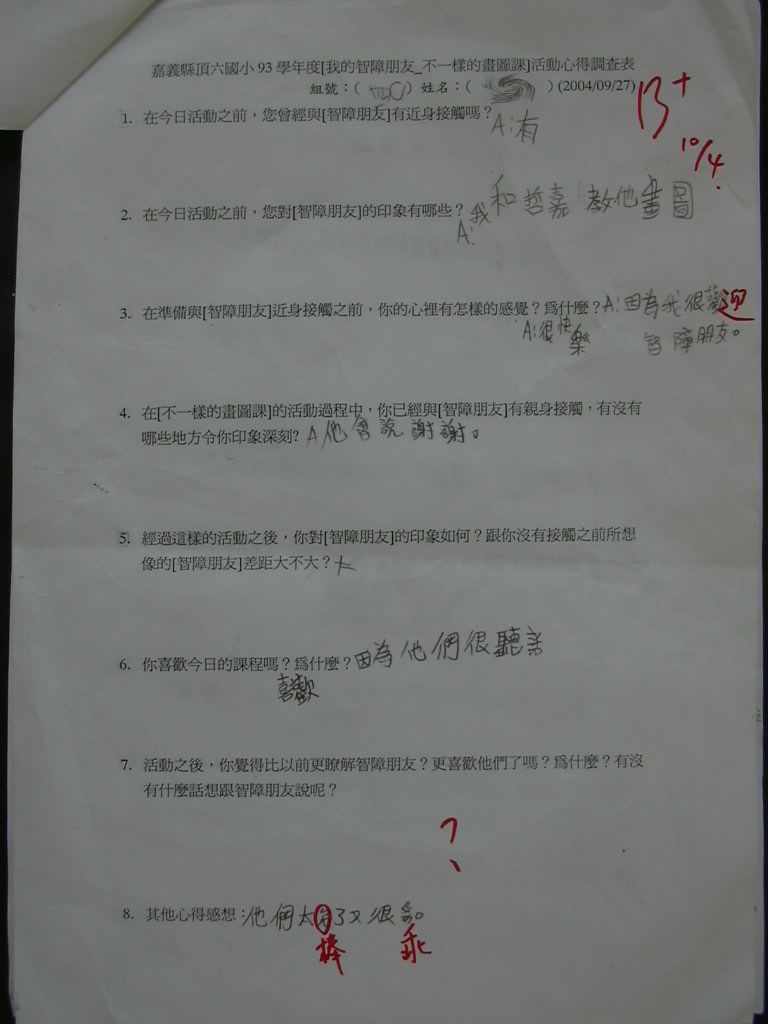 嘉義縣頂六國小 93 學年度[我的智障朋友_不一樣的畫圖課]活動心得調查表
組號：( ) 姓名：( ) (2004/09/27)
B+
10/4
1. 在今日活動之前，您曾經與[智障朋友]有近身接觸嗎？
A:有
2. 在今日活動之前，您對[智障朋友]的印象有哪些？
A:我和哲嘉教他畫圖
3. 在準備與[智障朋友]近身接觸之前，你的心裡有怎樣的感覺？爲什麼？A:因為我很歡迎
A:很快樂
智障朋友。
4. 在[不一樣的畫圖課]的活動過程中，你已經與[智障朋友]有親身接觸，有沒有
哪些地方令你印象深刻? A他會說謝謝。
5. 經過這樣的活動之後，你對[智障朋友]的印象如何？跟你沒有接觸之前所想
像的[智障朋友]差距大不大？大
6. 你喜歡今日的課程嗎？爲什麼？因為他們很聽話
喜歡
7. 活動之後，你覺得比以前更瞭解智障朋友？更喜歡他們了嗎？爲什麼？有沒
有什麼話想跟智障朋友說呢？
？
8. 其他心得感想：他們太了又很
棒 乖